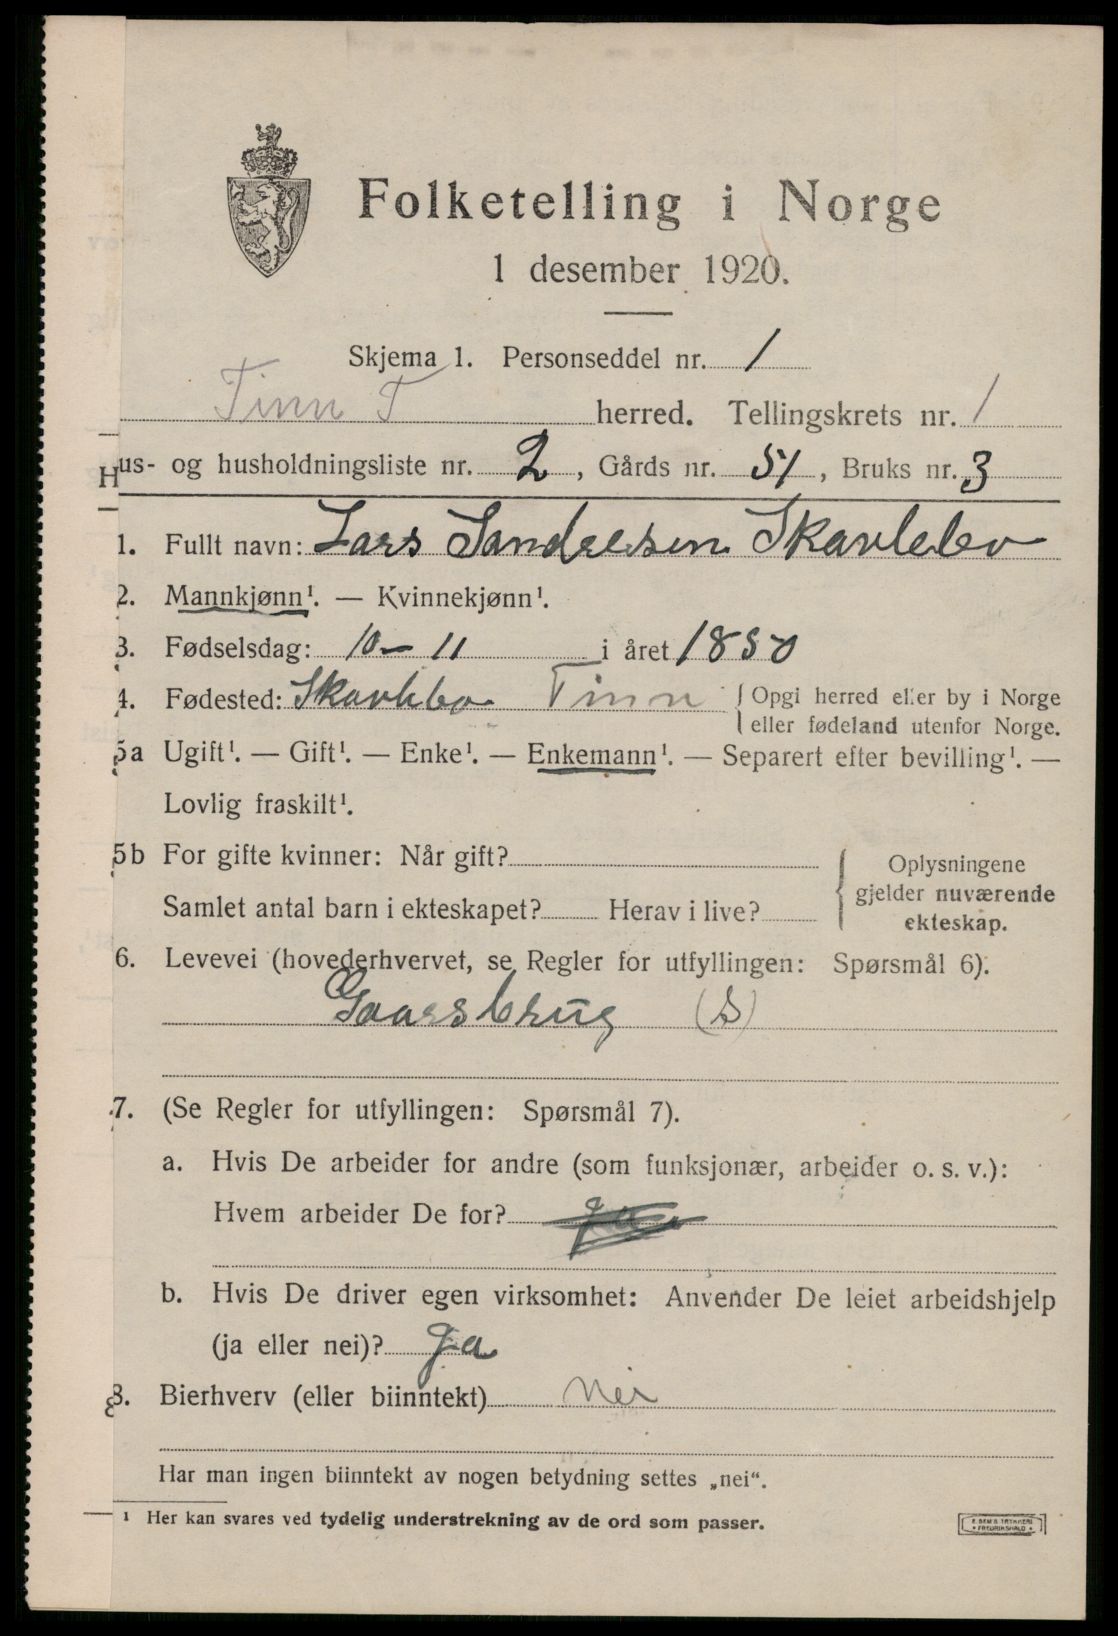 Folketelling i Norge
1 desember 1920.
Skjema 1. Personseddel nr. 1
Tinn T herred. Tellingskrets nr. 1
Hus- og husholdningsliste nr. 2, Gårds nr. 51, Bruks nr. 3
1. Fullt navn: Lars Sandresen Skavlebo
2. Mannkjønn¹. — Kvinnekjønn¹.
3. Fødselsdag: 10 - 11 i året 1850
4. Fødested: Skavlebo Tinn { Opgi herred eller by i Norge
eller fødeland utenfor Norge.
5a Ugift¹. — Gift¹. — Enke¹. — Enkemann¹. — Separert efter bevilling¹. —
Lovlig fraskilt¹.
5b For gifte kvinner: Når gift?
Samlet antal barn i ekteskapet? Herav i live?
Oplysningene
gjelder nuværende
ekteskap.
6. Levevei (hovederhvervet, se Regler for utfyllingen: Spørsmål 6).
Gaarsbrug (S)
7. (Se Regler for utfyllingen: Spørsmål 7).
a. Hvis De arbeider for andre (som funksjonær, arbeider o. s. v.):
Hvem arbeider De for? ja
b. Hvis De driver egen virksomhet: Anvender De leiet arbeidshjelp
(ja eller nei)? ja
8. Bierhverv (eller biinntekt) Nei
Har man ingen biinntekt av nogen betydning settes „nei“.
¹ Her kan svares ved tydelig understrekning av de ord som passer.